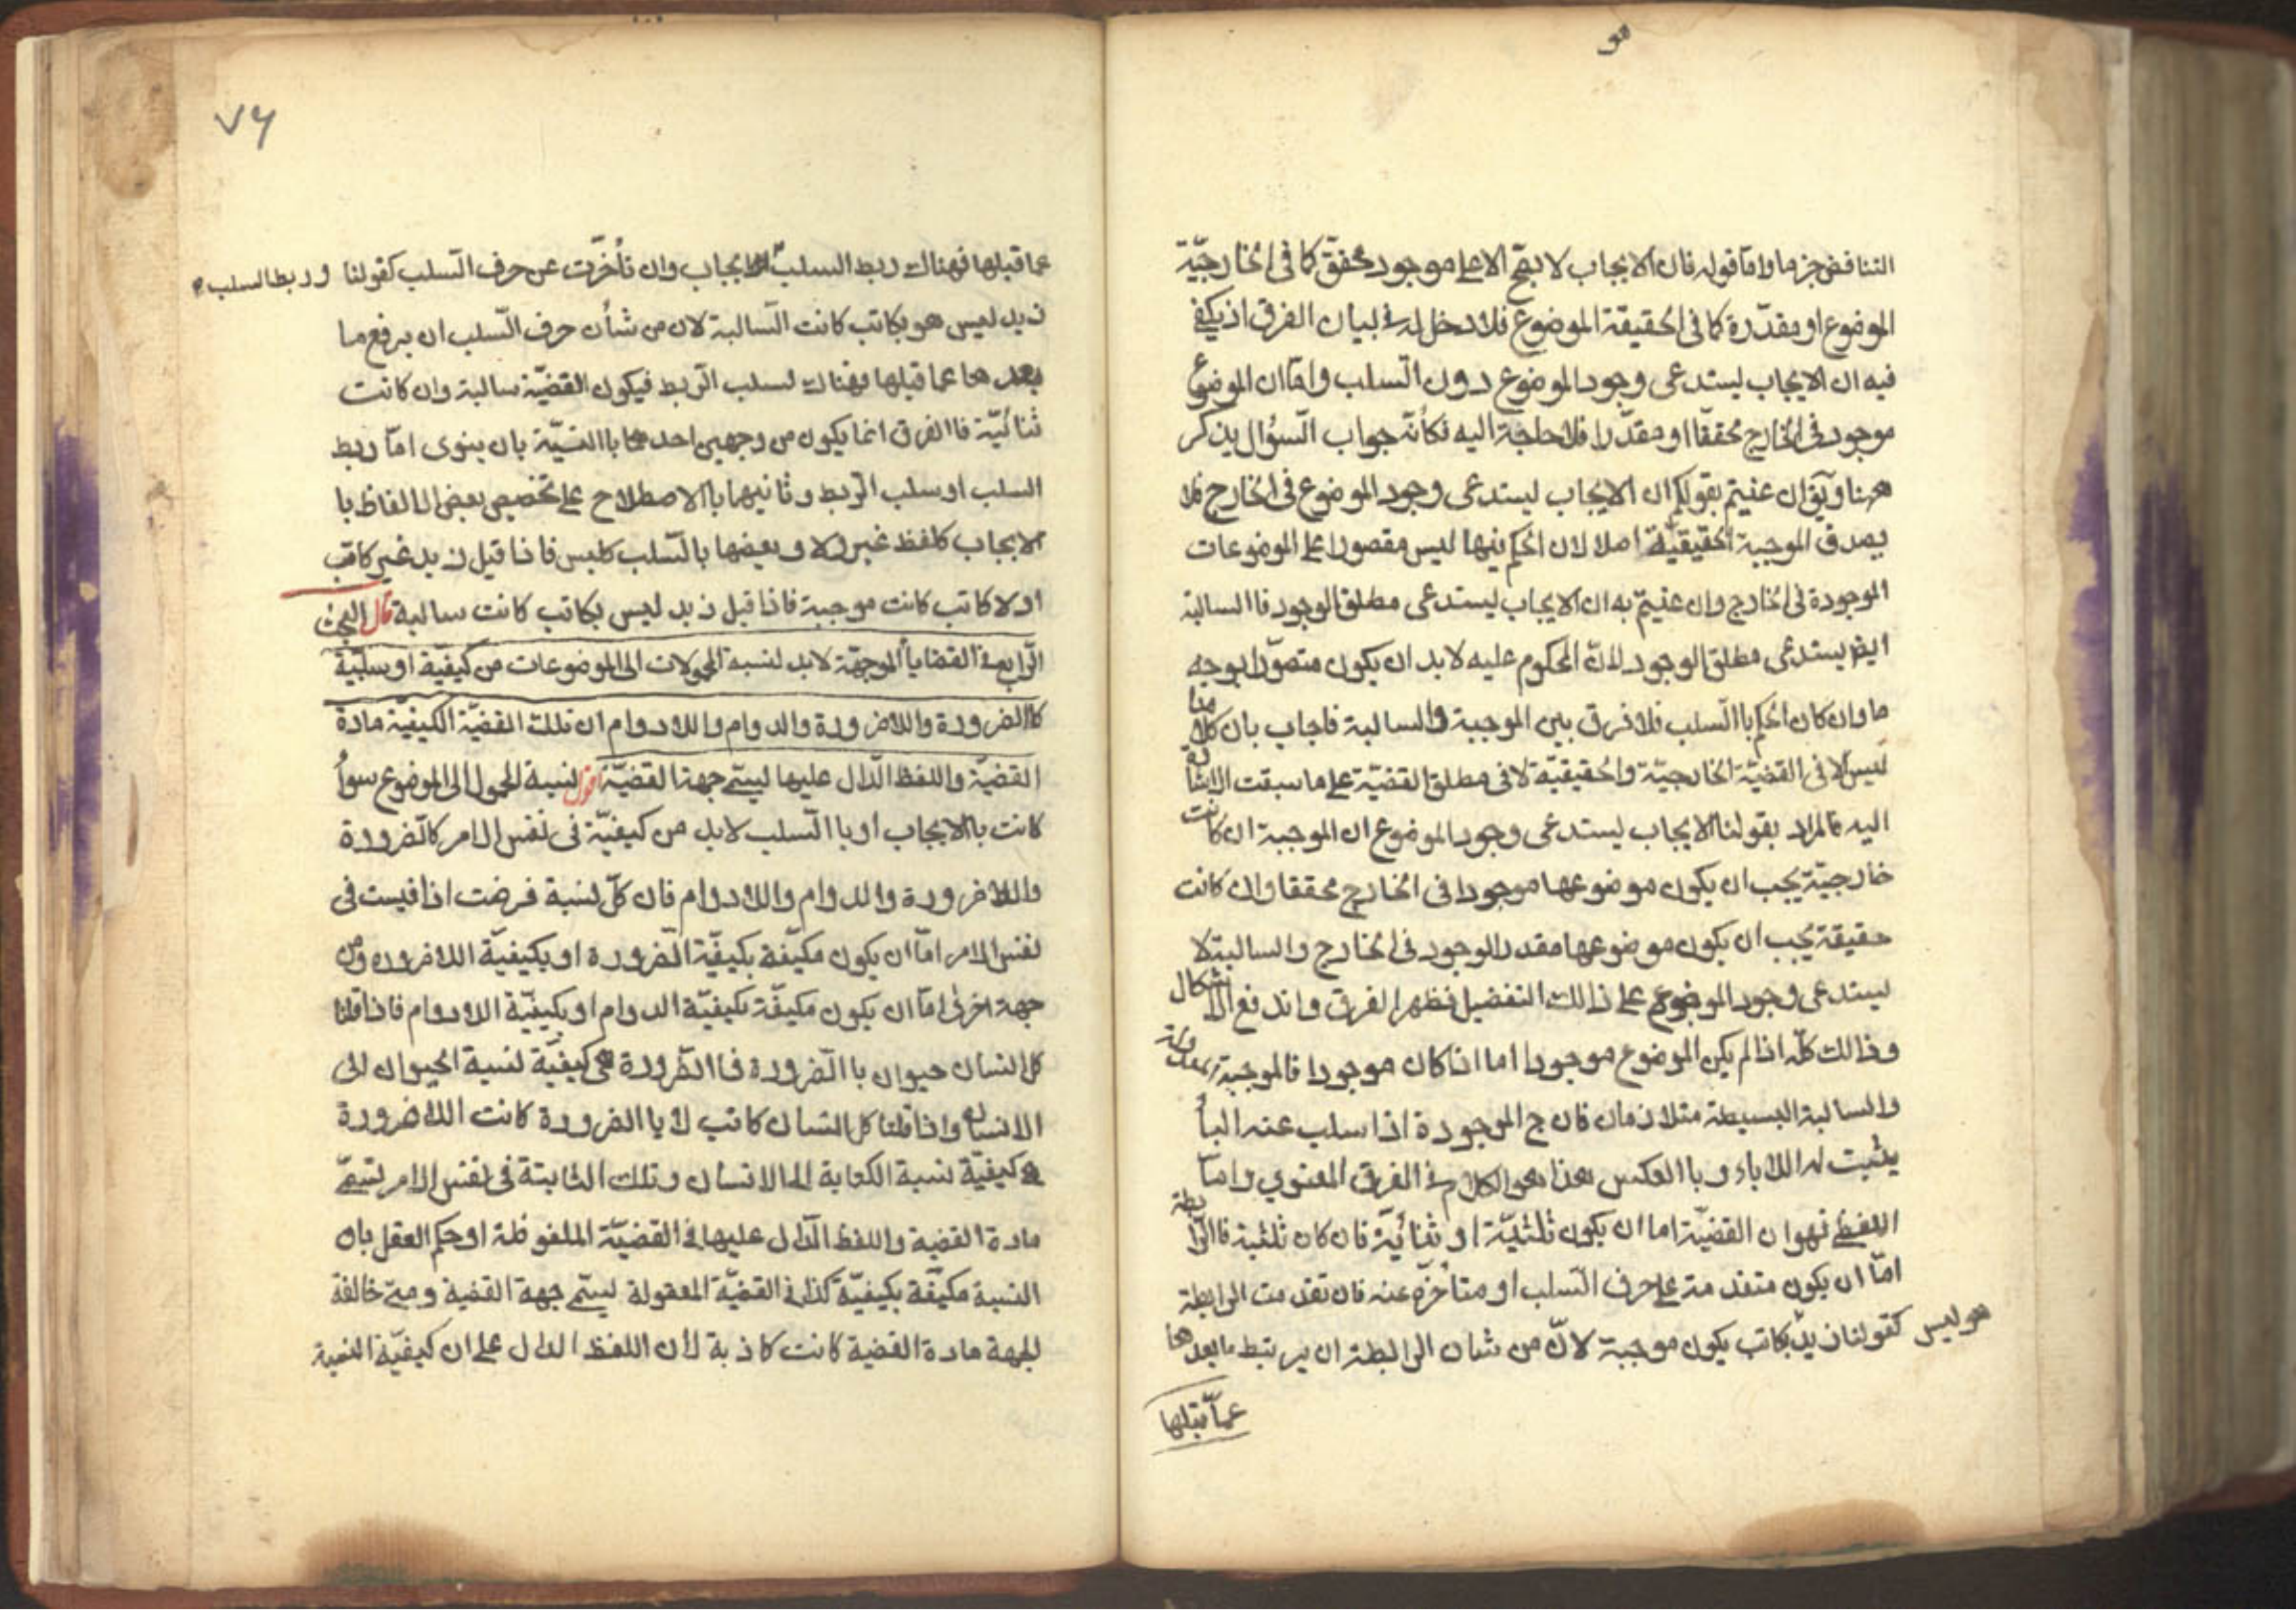 التناقض جزما واما قوله فان الايجاب لا يصح الا على موجود محقق كما فى الخارجيّة
الموضوع او مقدّرة كما فى الحقيقة الموضوع فلا دخل له فى لبيان الفرق اذ يكفى
فيه ان الايجاب يستدعى وجود الموضوع دون السّلب وامّا ان الموضوع
موجود فى الخارج محققا او مقدّرا فلا حاجة اليه فكأنّه جواب السّؤال يذكر
ههنا ويق ان عنيتم بقولكم ان الايجاب يستدعى وجود الموضوع فى الخارج فلا
يصدق الموجبة الحقيقيّة اصلا لان الحكم فيها ليس مقصورا على الموضوعات
الموجودة فى الخارج وان عنيتم به ان الايجاب يستدعى مطلق الوجود فاالسالبة
ايضا يستدعى مطلق الوجود لانّ المحكوم عليه لا بد ان يكون متصوّرا بوجه
ما وان كان الحكم باالسّلب فلا فرق بين الموجبة والسالبة فاجاب بان كلامنا
ليس الا فى القضيّة الخارجيّة والحقيقيّة لا فى مطلق القضيّة على ما سبقت الاشارة
اليه فالمراد بقولنا الايجاب يستدعى وجود الموضوع ان الموجبة ان كانت
خارجيّة يجب ان يكون موضوعها موجودا فى الخارج محققا وان كانت
حقيقة يجب ان يكون موضوعها مقدر الوجود فى الخارج والسالبة لا
يستدعى وجود الموضوع على ذالك التفضيل فظهر الفرق واندفع الاشكال
وذالك كلّه اذا لم يكن الموضوع موجودا اما اذا كان موجودا فالموجبة معدولة
والسالبة البسيطة متلازمان فان ج الموجودة اذا سلب عنه البأ
يثبت له اللاباء وباالعكس هذا هو الكلام فى الفرق المعنوي وامّا
اللفظى فهو ان القضيّة اما ان يكون ثلثيّة او ثنائيّة فان كان ثلثية فاالرّابطة
امّا ان يكون متقدمة على حرف السّلب او متأخرة عنه فان تقدمت الرابطة
كقولنا زيد هو ليس بكاتب يكون موجبة لانّ من شان الرابطة ان يرتبط ما بعدها
عمّا قبلها
٧٦
عما قبلها فهناك ربط السلب الايجاب وان تأخرّت عن حرف السّلب كقولنا وربط السلب
زيد ليس هو بكاتب كانت السّالبة لان من شأن حرف السّلب ان يرفع ما
بعدها عما قبلها فهناك لسلب الرّبط فيكون القضيّة سالبة وان كانت
ثنائيّة فاالفرق انما يكون من وجهين احدهما باالنيّة بان ينوى امّا ربط
السلب او سلب الرّبط وثانيهما باالاصطلاح على تخصيص بعض الالفاظ با
الايجاب كلفظ غير ولا وبعضها بالسّلب كليس فاذا قيل زيد غير كاتب
او لا كاتب كانت موجبة فاذا قيل زيد ليس بكاتب كانت سالبة قال البحث
الرّابع فى القضايا الموجهّة لا بد لنسبة المحمولات الى الموضوعات من كيفيّة او سلبيّة
كاالضرورة واللاضرورة والدوام واللادوام ان تلك القضيّة الكيفيّة مادة
القضيّة واللفظ الدّال عليها ليسمّى جهة القضيّة اقول نسبة المحمول الى الموضوع سوأ
كانت باالايجاب او باالسّلب لابد من كيفيّة فى نفس الامر كالضرورة
واللاضرورة والدوام واللادوام فان كلّ نسبة فرضت اذا قيست فى
نفس الامر امّا ان يكون مكيّفة بكيفيّة الضرورة او بكيفيّة اللاضروره ومن
جهة اخرى امّا ان يكون مكيفّة بكيفيّة الدوام او بكيفيّة اللادوام فاذا قلنا
كل انسان حيوان باالضرورة فاالضّرورة هى كيفيّة لنسبة الحيوان الى
الانسان واذا قلنا كل انسان كاتب لا باالضرورة كانت اللاضرورة
هى كيفيّة نسبة الكتابة الى الانسان وتلك الثابتة فى نفس الامر تسمّى
مادة القضية واللفظ الدّال عليها فى القضيّة الملفوظة او حكم العقل بان
النسبة مكيّفة بكيفيّة كذا فى القضيّة المعقولة ليسمّى جهة القضية ومتى خالفة
لجهة مادة القضية كانت كاذبة لأن اللفظ الدال على ان كيفيّة النسبة